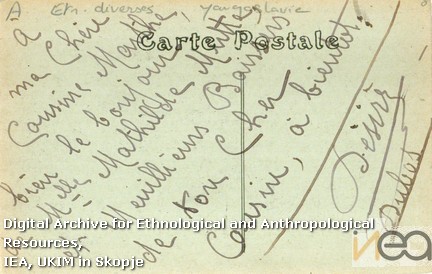 A Etn. diverses, yougoslavie
Carte Postale
A
ma Chère
Cousine Marthe
bien le bonjour
à Mlle Mathilde
Meuilleurs Baisers
de ton Cher
Cousin, à bientôt
Désiré
Dubois
Digital Archive for Ethnological and Anthropological
Resources,
IEA, UKIM in Skopje
iea